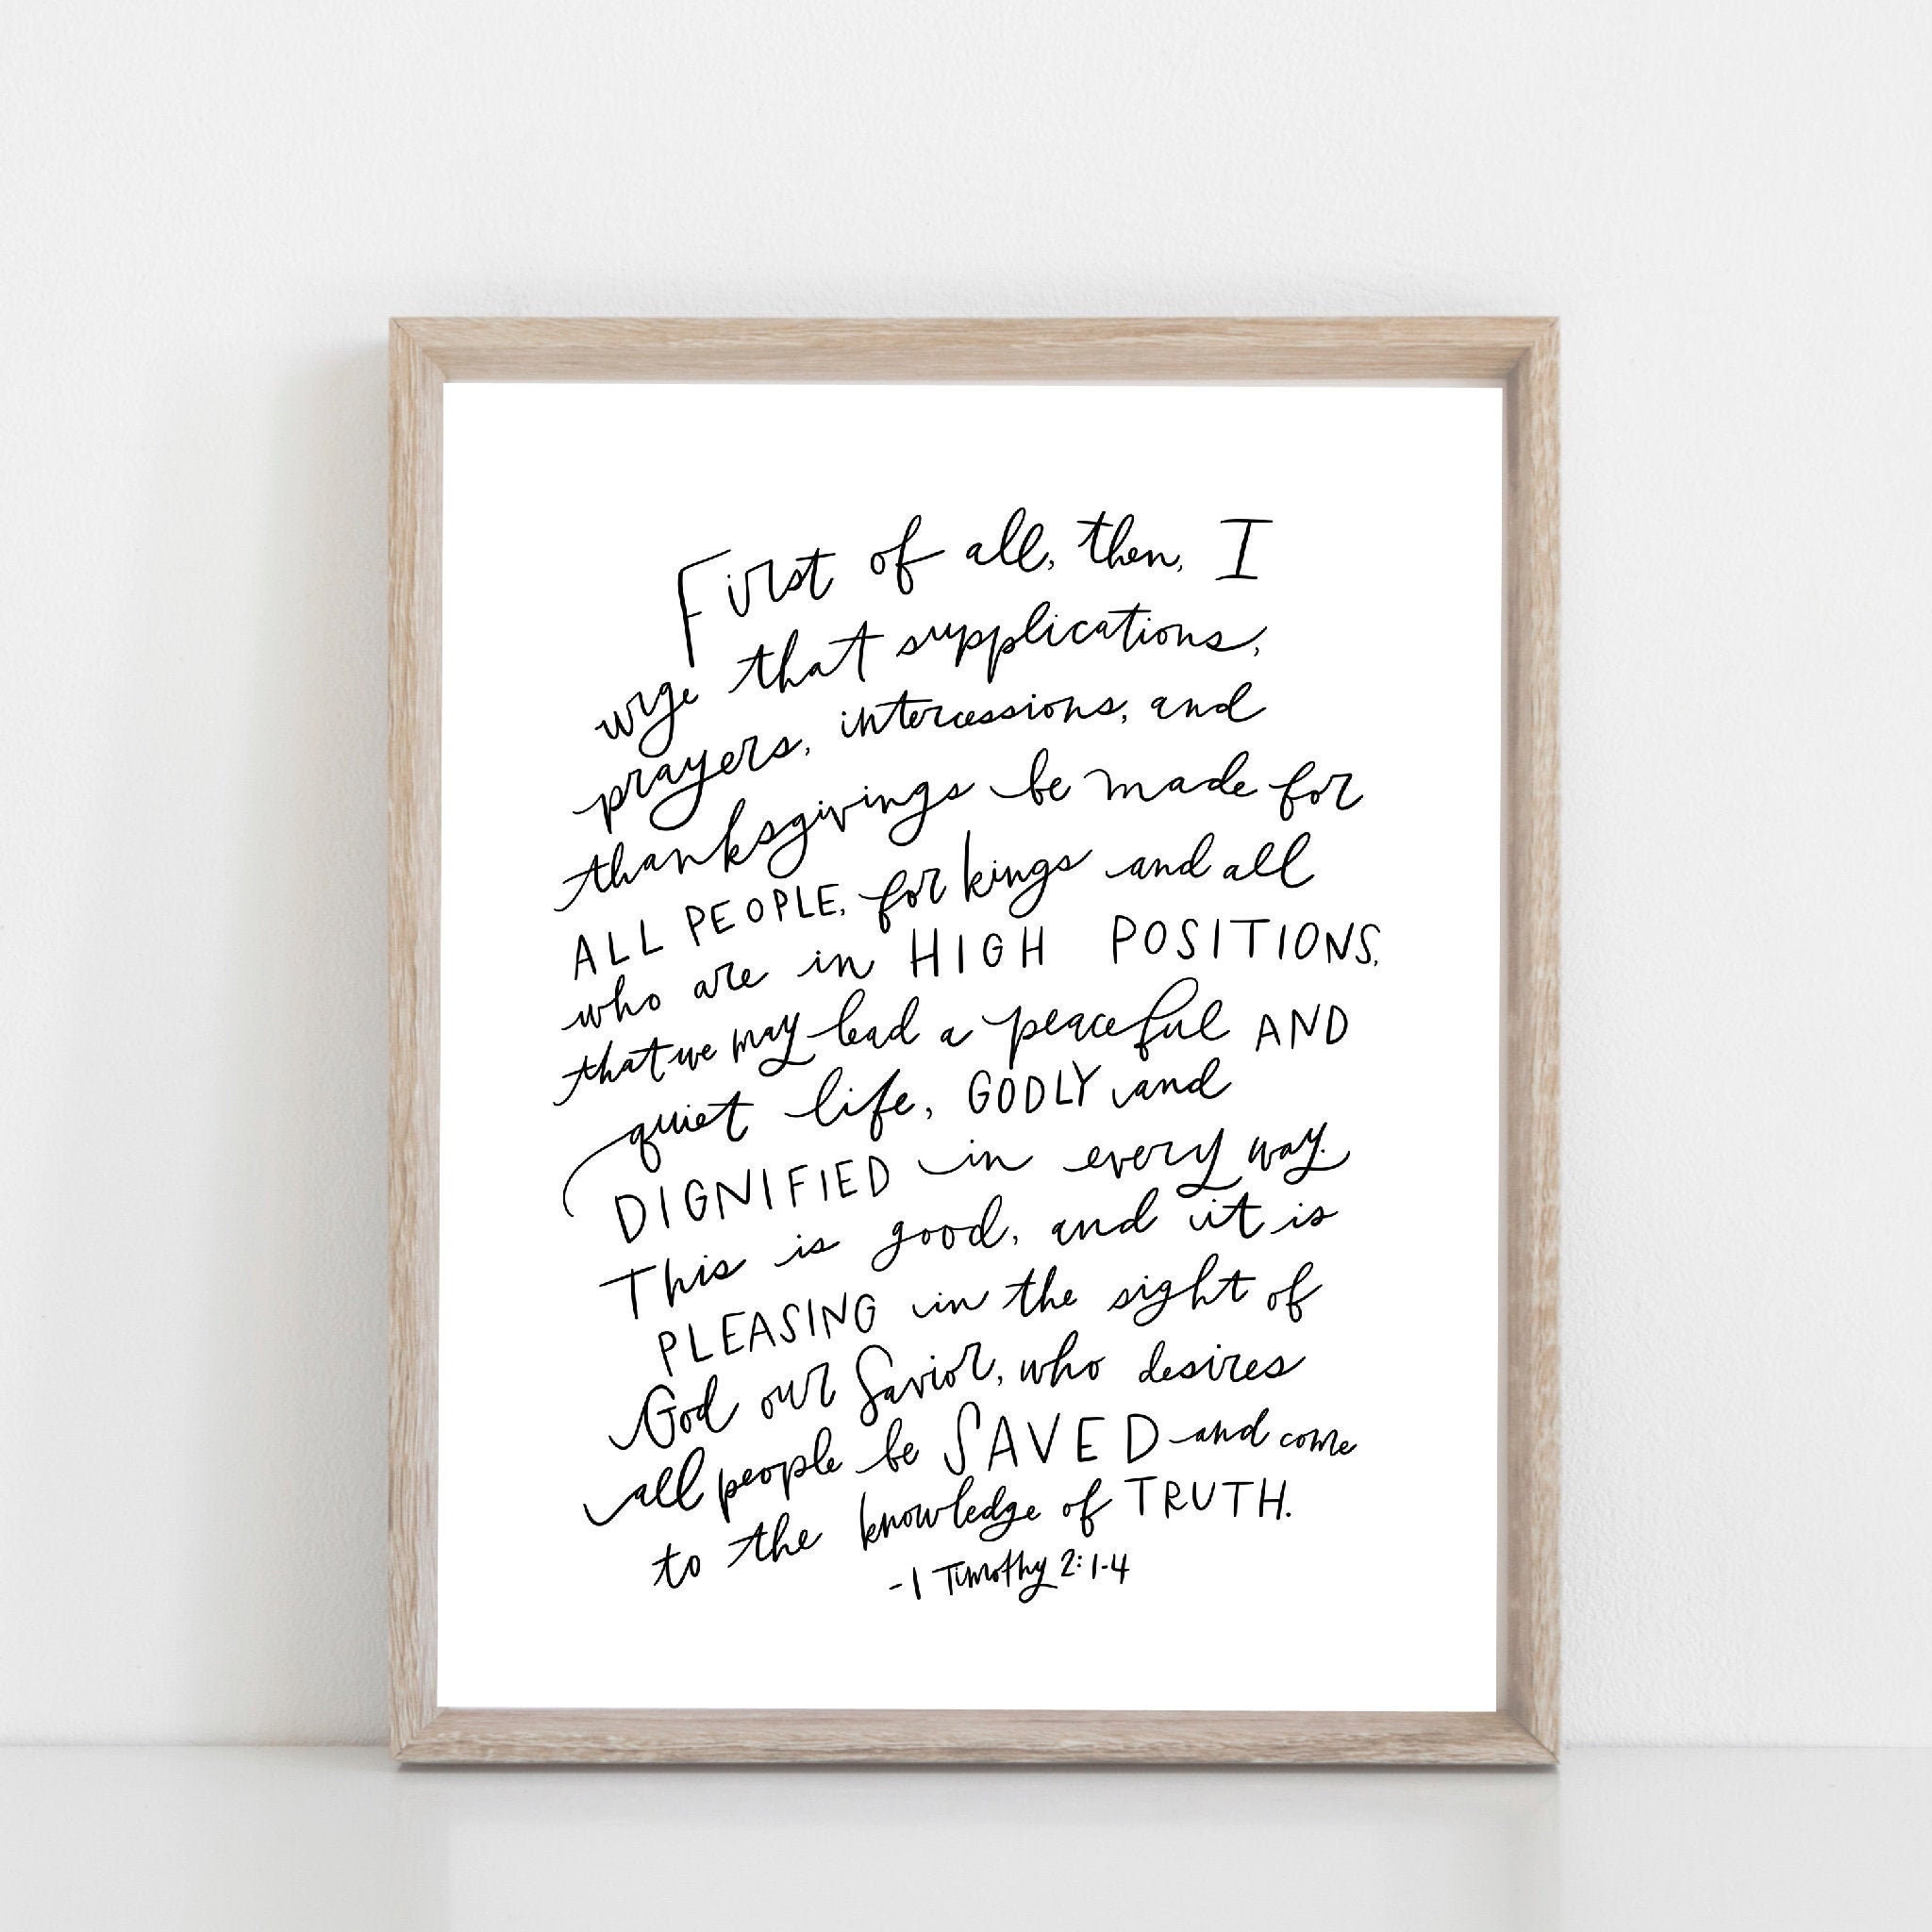 First of all, then, I
urge that supplications,
prayers, intercessions, and
thanksgivings be made for
ALL PEOPLE, for kings and all
who are in HIGH POSITIONS,
that we may lead a peaceful AND
quiet life, GODLY and
DIGNIFIED in every way.
This is good, and it is
PLEASING in the sight of
God our Savior, who desires
all people be SAVED and come
to the knowledge of TRUTH.
-1 Timothy 2:1-4